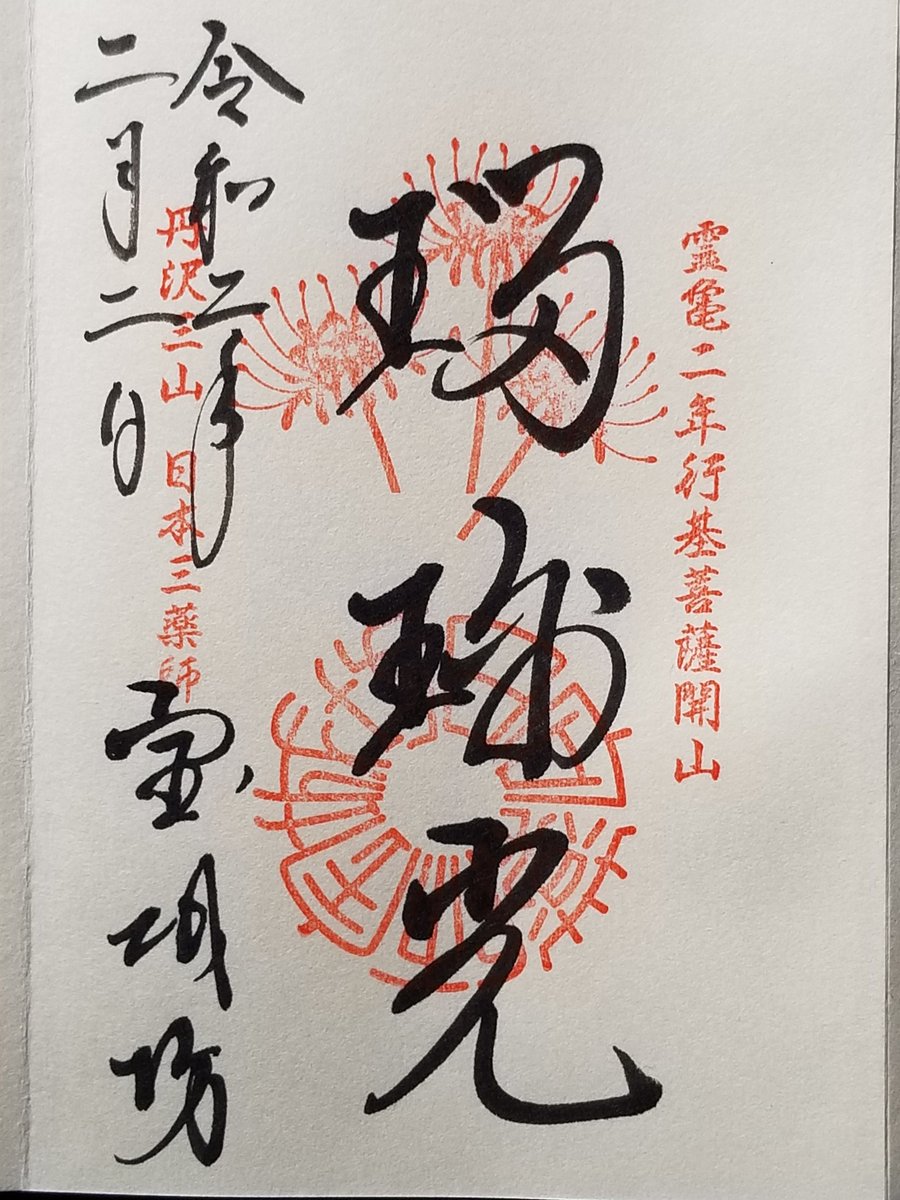 霊亀二年行基菩薩開山
瑠璃光
丹沢三山 日本三薬師
令和二年
二月二日
宝城坊